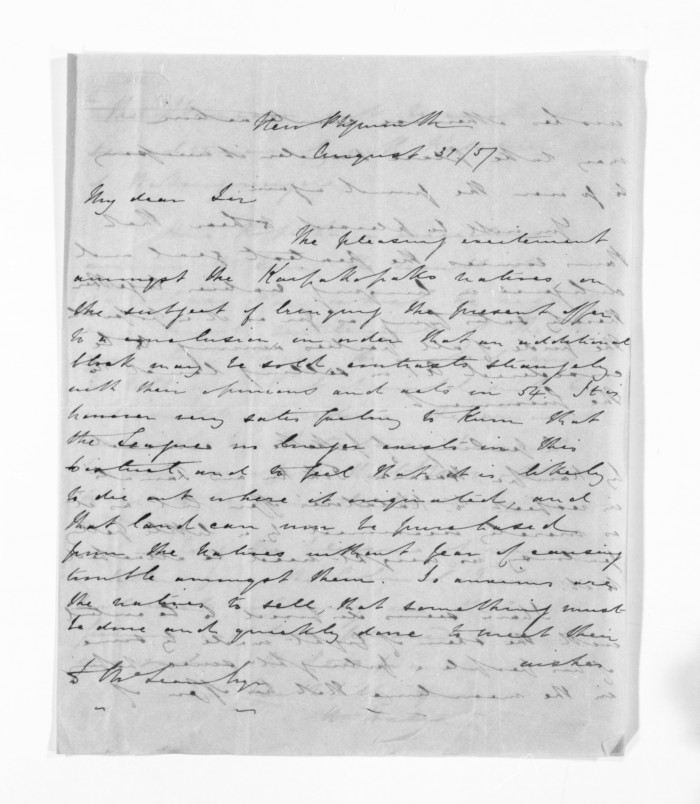 New Plymouth
August 31/57
My dear Sir
The pleasing excitement
amongst the natives on
the subject of bringing the present offer
to a conclusion in order that an additional
block may be sold, contrasts strangely
with their opinions and acts in 54. It is
however very satisfactory to know that
the League no longer exists in this
District and to feel that it is likely
to die out where it originated, and
that land can now be purchased
from the natives without fear of causing
trouble amongst them. So anxious are
the natives to sell, that something must
be done and quickly done to meet their
wishes
D McLean Esqr